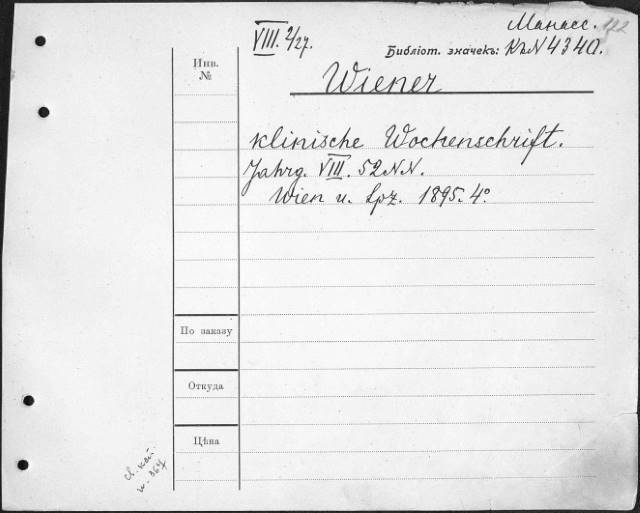 Манасс. 172
VIII. 2/27.
Библіот. значекъ: КкN 4340.
Инв.
№
Wiener
klinische Wochenschrift.
Jahrg. VIII. 52 NN.
Wien u. Lpz. 1895. 4°.
По заказу
Откуда
Цѣна